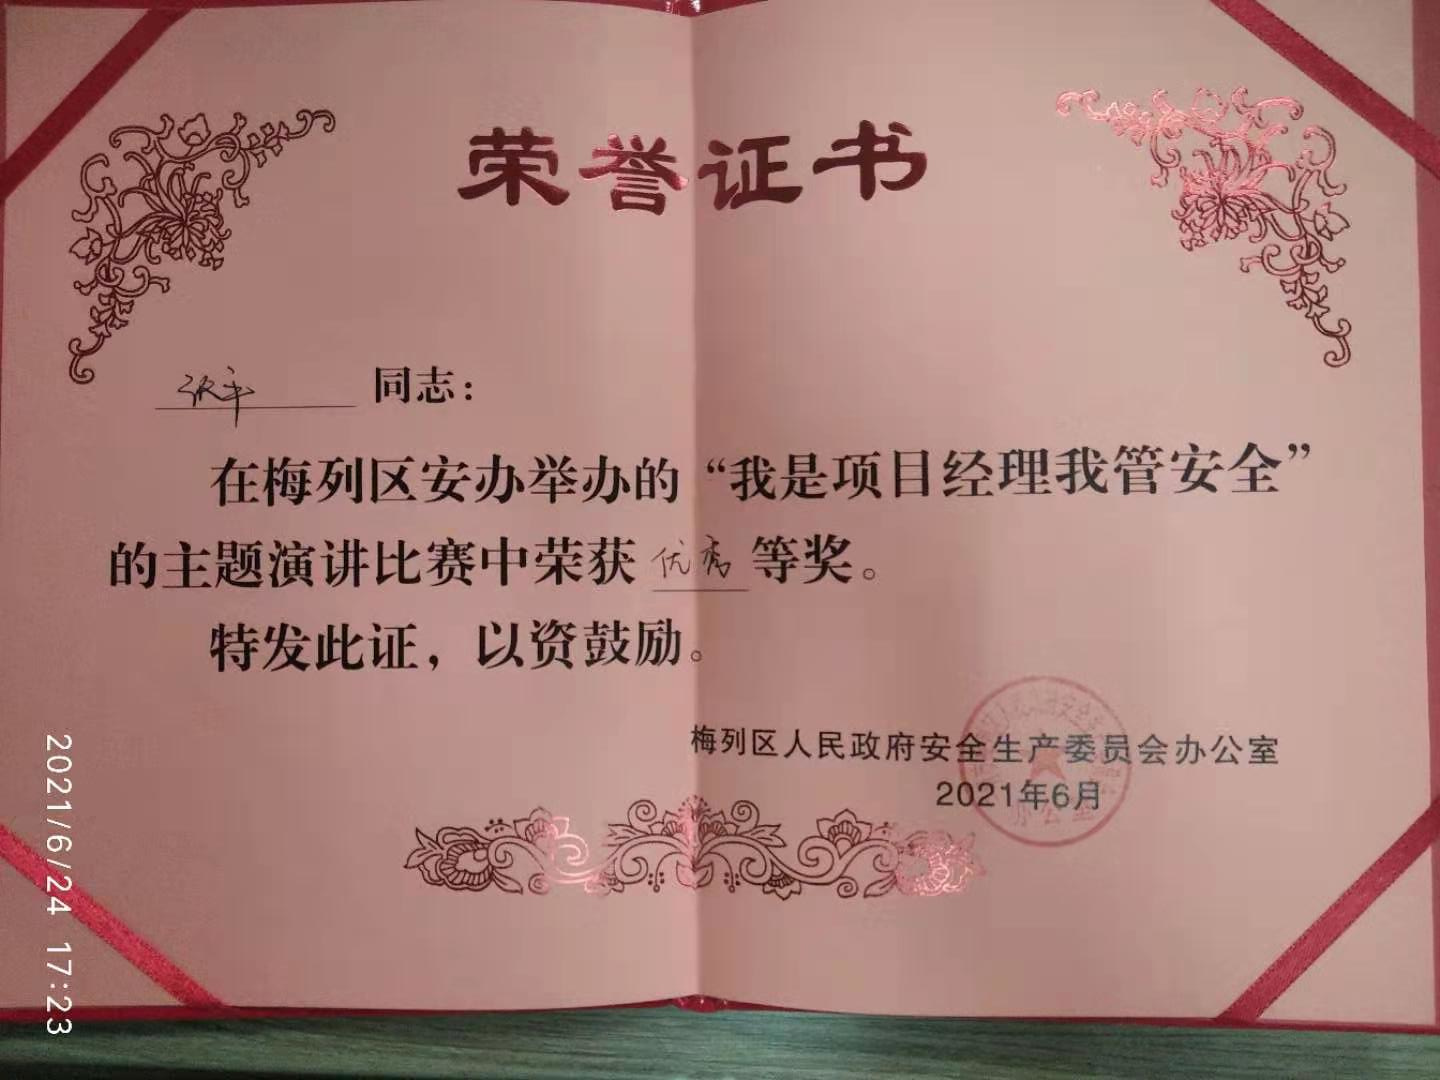 荣誉证书
张平 同志：
在梅列区安办举办的“我是项目经理我管安全”
的主题演讲比赛中荣获 优秀 等奖。
特发此证，以资鼓励。
梅列区人民政府安全生产委员会办公室
2021年6月
办公室
2021/6/24 17:23